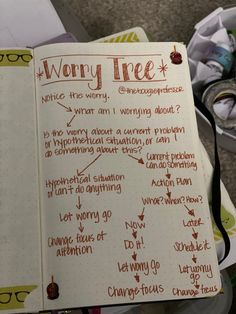 Worry Tree
Notice the worry.
What am I worrying about?
Is the worry about a current problem
or hypothetical situation, or can I
do something about this?
Current problem
can do something
Hypothetical situation
or can't do anything
Action Plan
Let worry go
What? When? How?
Change focus of
attention
Now
Later
Do it!
Schedule it
Let worry go
Let worry go
Change focus
Change focus